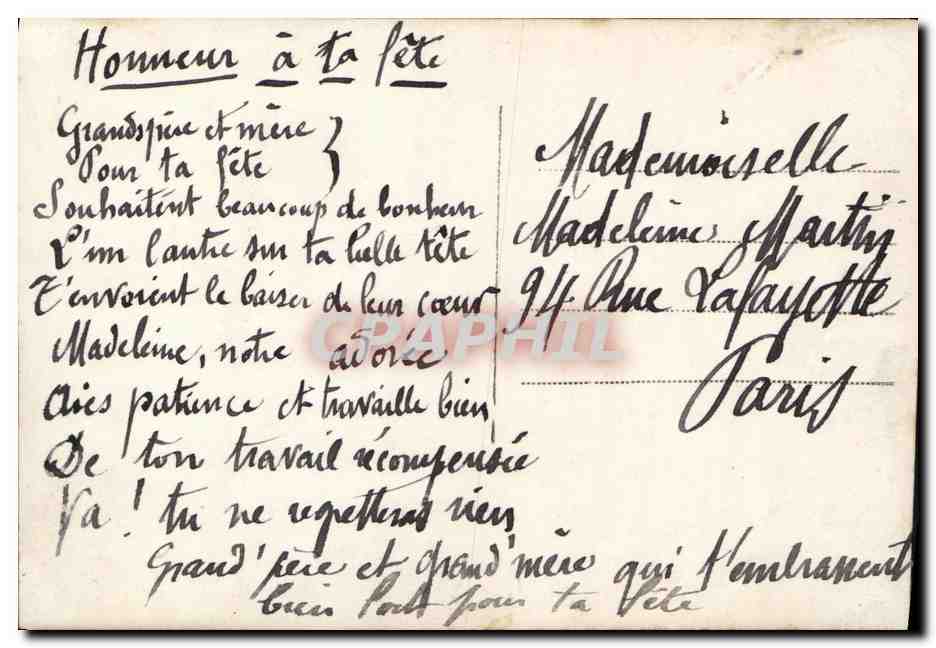 Honneur à ta fête
Grands père et mère
Pour ta fête
Souhaitent beaucoup de bonheur
L'un l'autre sur ta belle tête
T'envoient le baiser de leur cœur
Madeleine, notre adorée
Aies patience et travaille bien
De ton travail récompensée
Va ! tu ne regretteras rien
Grand'père et grand'mère qui t'embrassent
bien fort pour ta fête
Mademoiselle
Madeleine Martin
94 Rue Lafayette
Paris
CPAPHIL